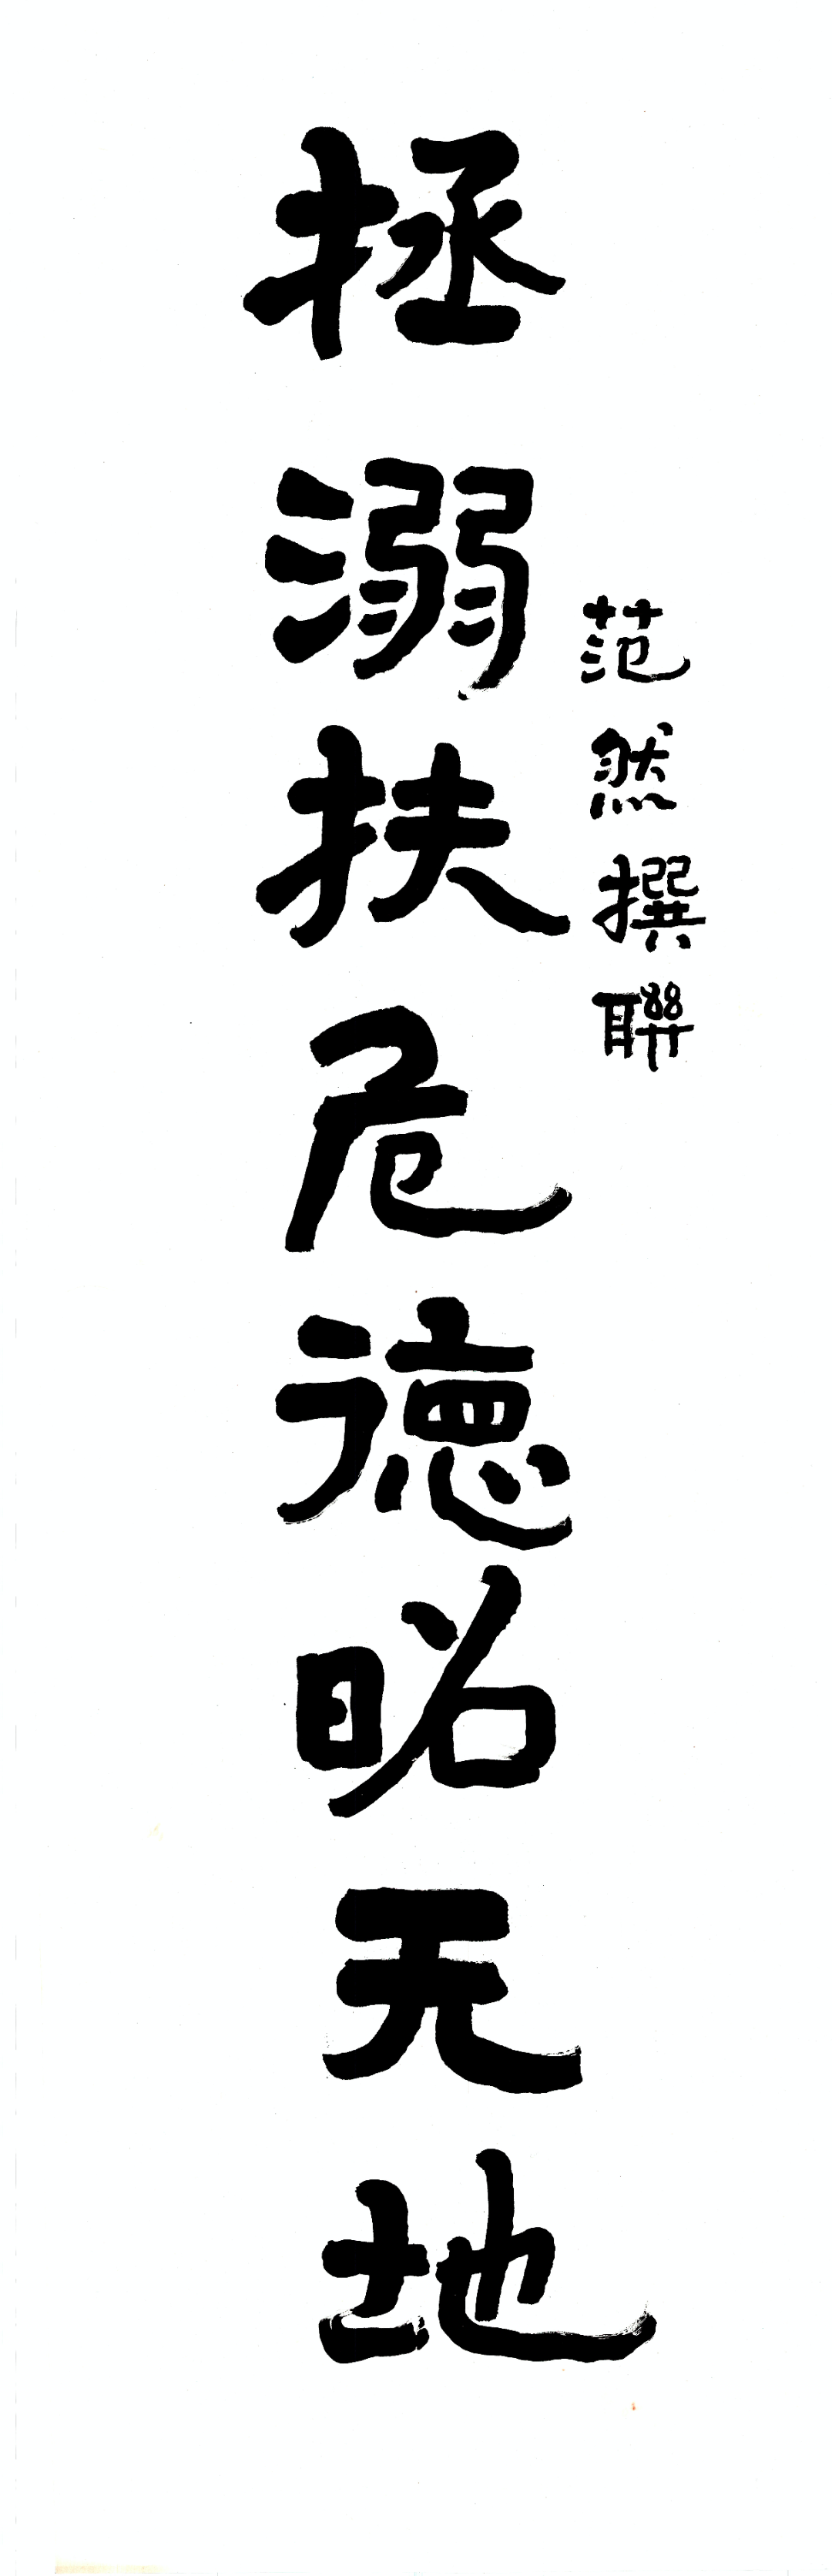 范然撰聯
拯溺扶危德昭天地